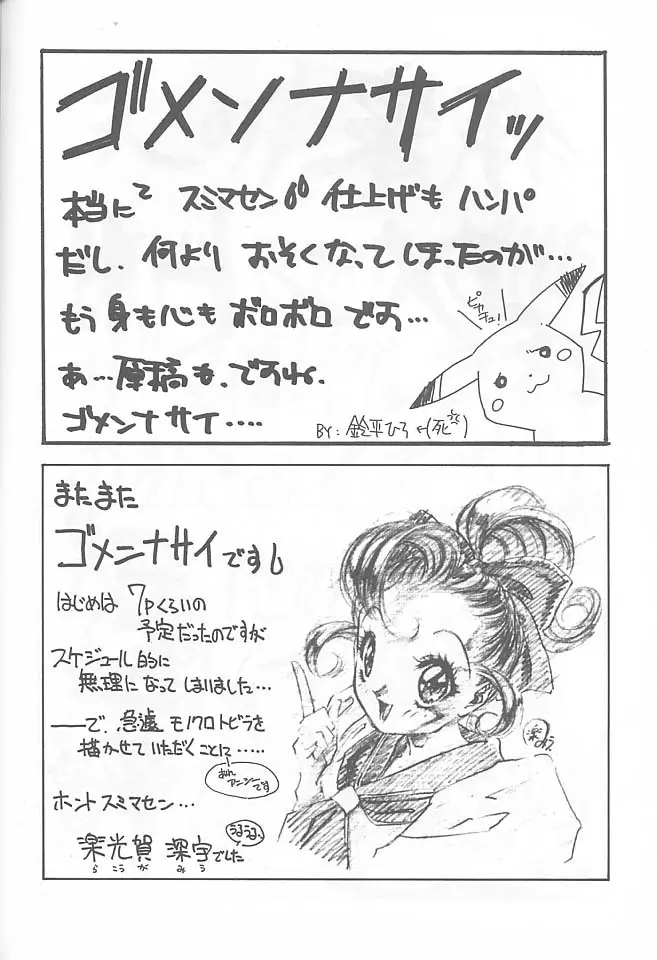 ゴメンナサイッ
本当にて スミマセン 仕上げも ハンパ
だし、何より おそくなって しまったのが…
もう 身も心も ボロボロ です…
あ…原稿も、ですね、
ゴメンナサイ….
ピカチュ!
BY: 鈴平ひろ ←(死)
またまた
ゴメンナサイです
はじめは 7Pくらいの
予定だったのですが
スケジュール的に
無理になって しまいました…
——で、急遽 モノクロトビラを
描かせていただくことに……
アニシーです
ホント スミマセン…
楽光賀 深宇でした
らこうが みう
うるうる、
楽みう